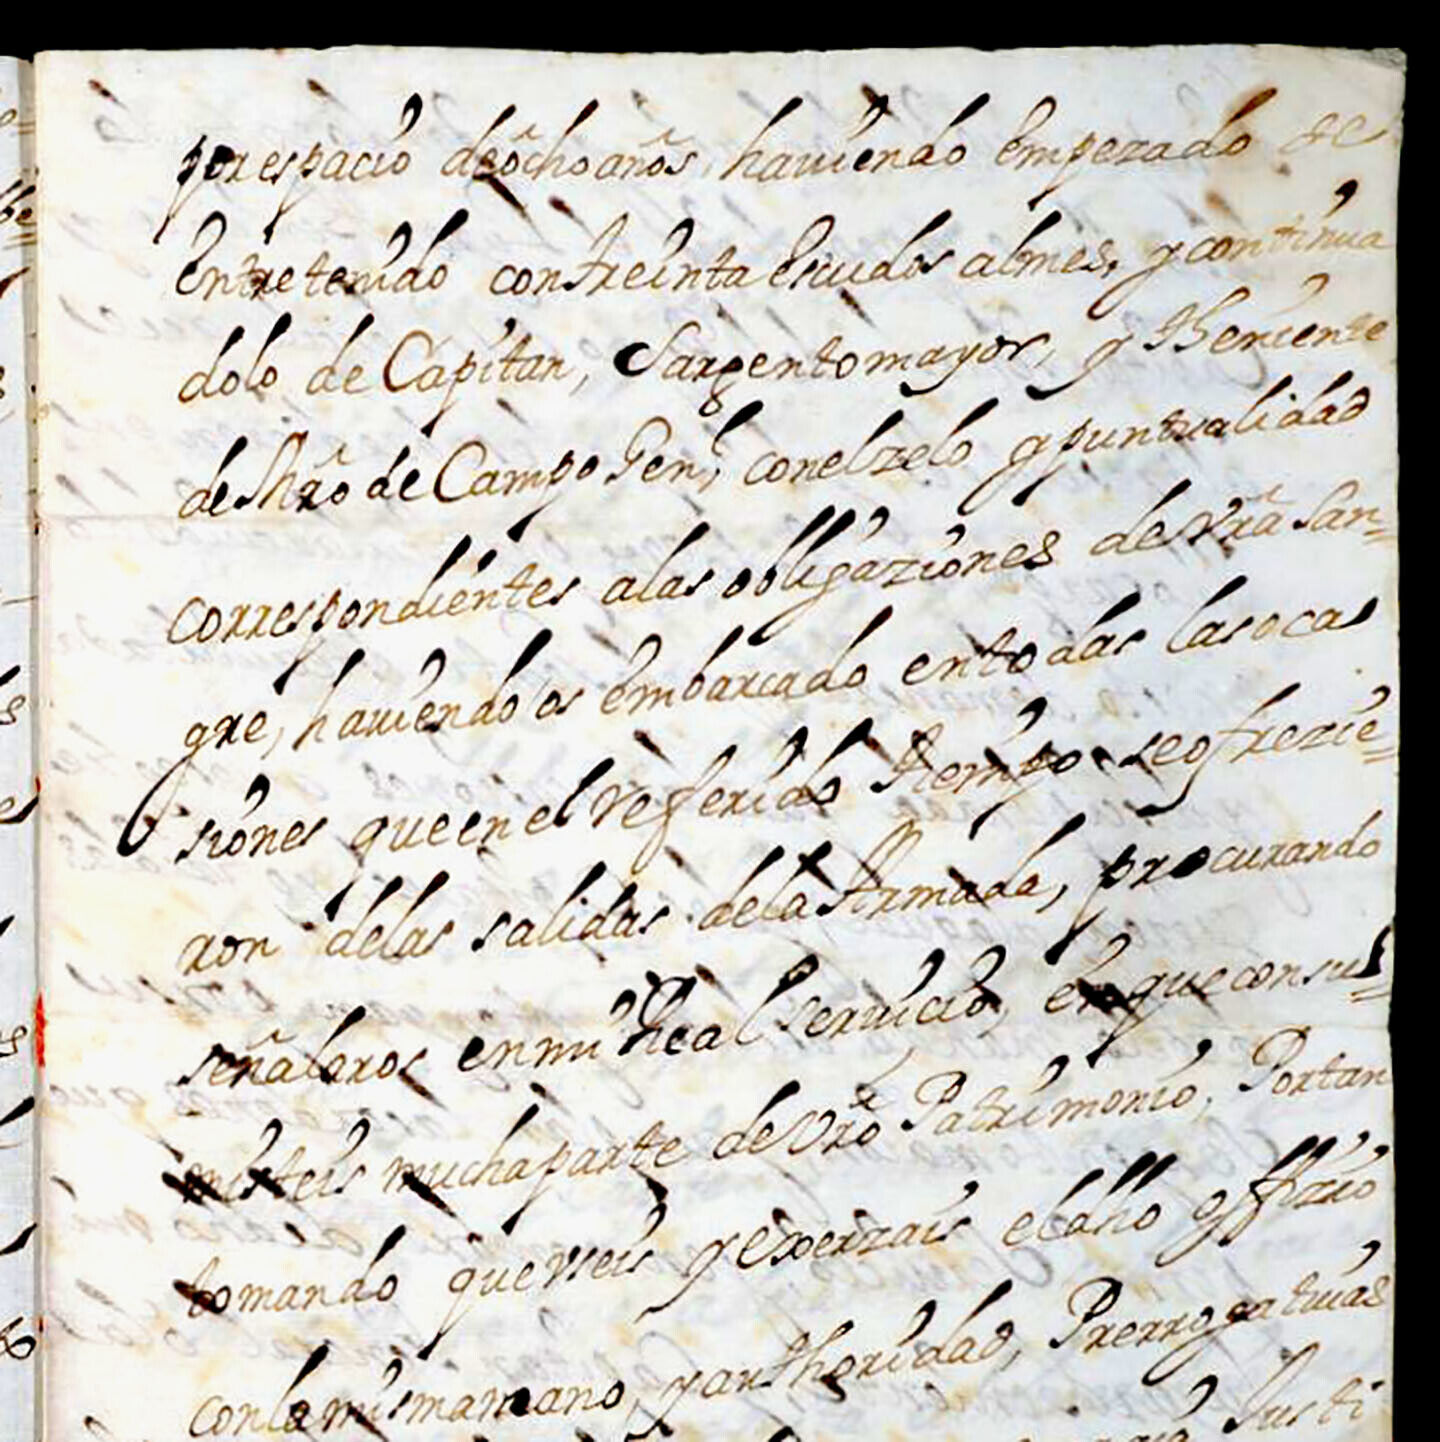 por espacio de ocho años, haviendo empezado de
entretenido con treinta escudos al mes, y continua
dolo de Capitan, Sargento mayor, y Theniente
de Mrõ de Campo Gen.l con el zelo y puntualidad
correspondientes a las obligaziones de vrã San-
gre, haviendo os embarcado en todas las ocas
siones que en el referido tiempo se ofrezie-
ron de las salidas de la Armada, procurando
señalaros en mi Real servicio, en que consu-
misteis mucha parte de vrõ Patrimonio, Portan
tomando que useis y exerzais el dho offizio
con la misma mano, y authoridad, Prerrogativas
Justi